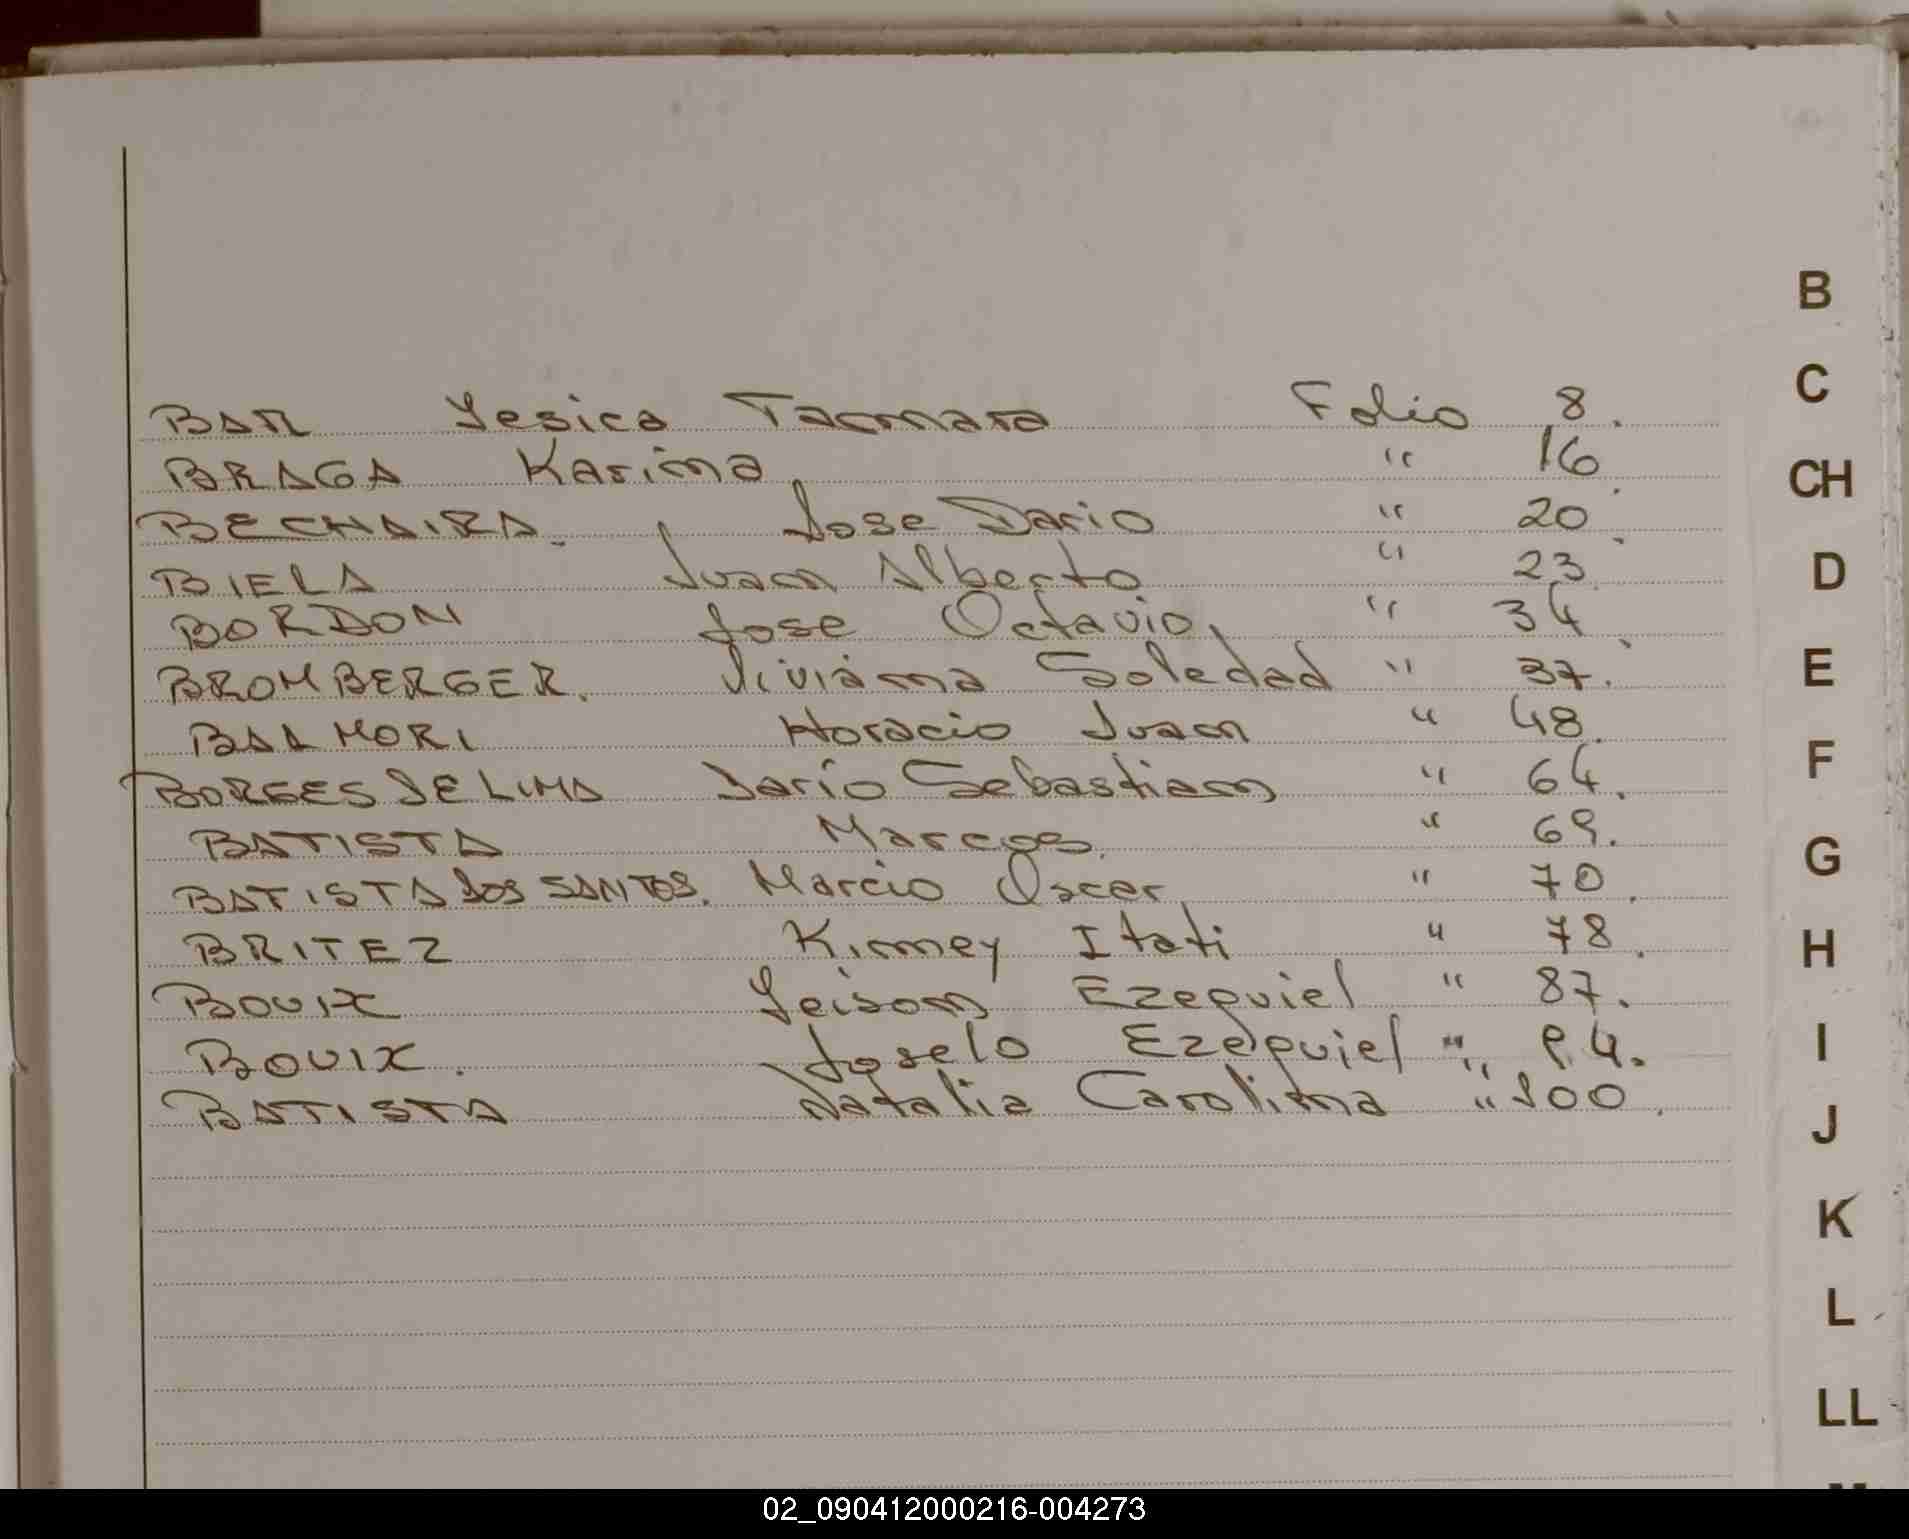 BAR Yesica Tamara Folio 8.
BRAGA Karina " 16
BECHAIRA. Jose Dario " 20
BIELA Juan Alberto " 23
BORDON Jose Octavio " 34
BROMBERGER. Viviana Soledad " 37.
BALMORI Horacio Juan " 48.
BORGES DE LIMA Dario Sebastian " 64.
BATISTA Marcos. " 69.
BATISTA DOS SANTOS. Marcio Oscar " 70.
BRITEZ Kimey Itati " 78.
BOUIX Yeison Ezequiel " 87.
BOUIX. Joselo Ezequiel " 94.
BATISTA Natalia Carolina " 100.
B
C
CH
D
E
F
G
H
I
J
K
L
LL
02_090412000216-004273